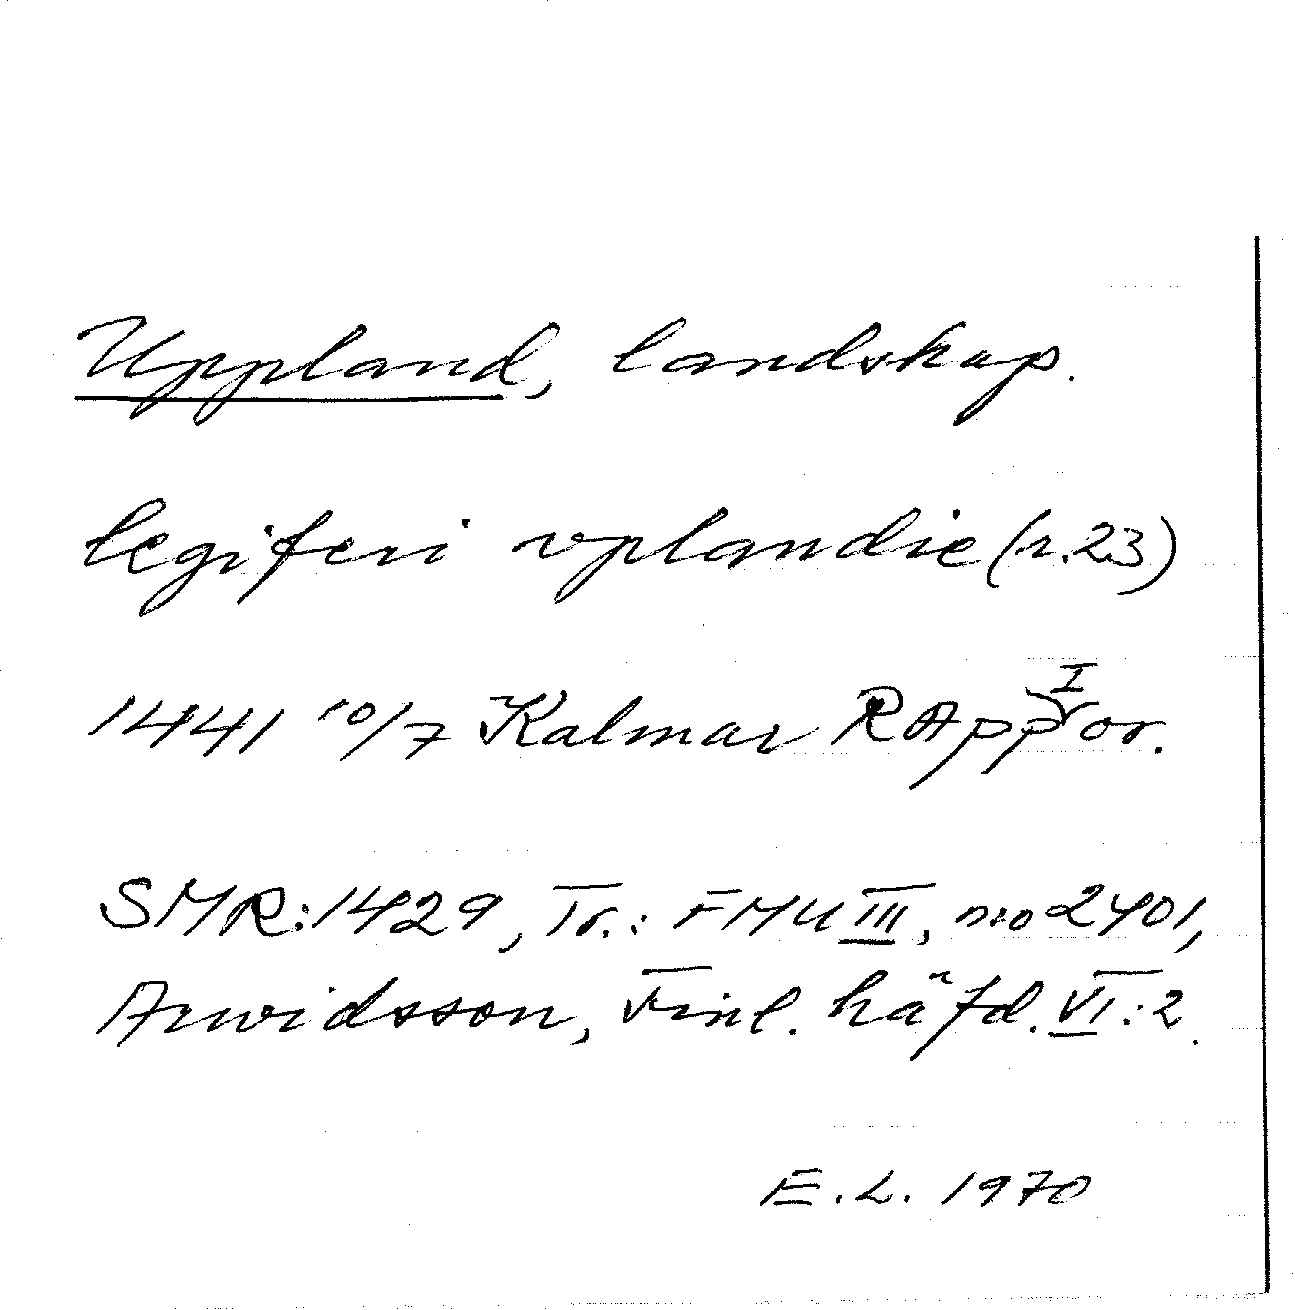 Uppland, landskap.
legiferi vplandie (r. 23)
1441 10/7 Kalmar RApp I or.
SMR: 1429, Tr.: FMU III, no 2401,
Arwidsson, Finl. häfd. VI: 2.
E. L. 1970